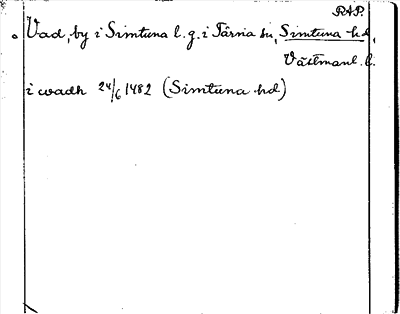 RAP.
Vad, by i Simtuna l. g. i Tärna sn, Simtuna hd,
Västmanl. l.
i wadh 24/6 1482 (Simtuna hd)